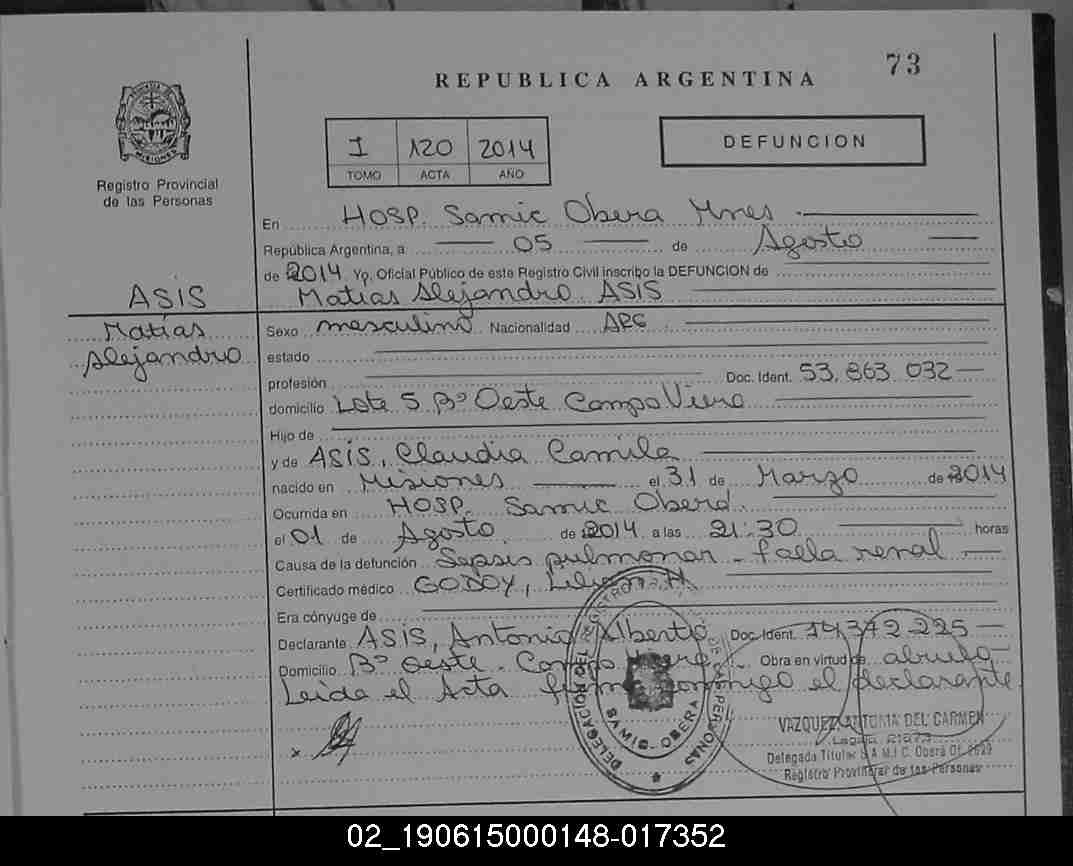 73
REPUBLICA ARGENTINA
MISIONES
Registro Provincial
de las Personas
I 120 2014
TOMO ACTA AÑO
DEFUNCION
En HOSP. Samic Obera Mnes
República Argentina, a 05 de Agosto
de 2014 Yo, Oficial Público de este Registro Civil inscribo la DEFUNCION de
Matias Alejandro ASIS
ASIS
Matías
Alejandro
Sexo masculino Nacionalidad ARG
estado
profesión Doc. Ident. 53.863 032
domicilio Lote 5 Bº Oeste Campo Viera
Hijo de
y de ASÍS, Claudia Camila
nacido en Misiones el 31 de Marzo de 2014
Ocurrida en HOSP. Samic Oberá.
el 01 de Agosto de 2014 a las 21:30 horas
Causa de la defunción Sepsis pulmonar - falla renal
Certificado médico GODOY,
Era cónyuge de
Declarante ASÍS, Antonio Alberto Doc. Ident. 14.372.225
Domicilio Bº Oeste. Campo Viera Obra en virtud de abuelo
Leída el Acta firma conmigo el declarante
DELEGACION DEL REGISTRO PERSONAS
SAMIC-OBERA
VAZQUEZ, ANTONIA DEL CARMEN
Delegada Titular S.A.M.I.C. Oberá Of.
Registro Provincial de las Personas
02_190615000148-017352